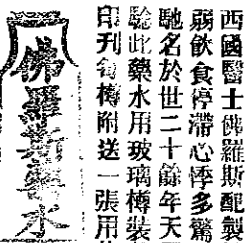 西國醫士佛羅斯配製
弱飲食停滯心悸多驚
馳名於世二十餘年天
驗此藥水用玻璃樽裝
印刊每樽附送一張用
佛羅斯藥水